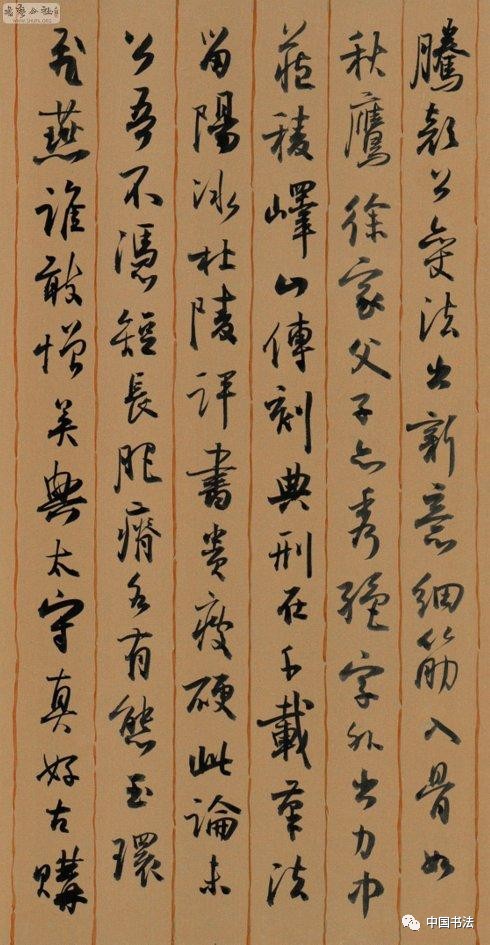 騰顏公變法出新意細筋入骨如
秋鷹徐家父子亦秀絕字外出力中
藏稜嶧山傳刻典刑在千載筆法
留陽冰杜陵評書貴瘦硬此論未
公吾不憑短長肥瘠各有態玉環
飛燕誰敢憎吳興太守真好古購
中国书法